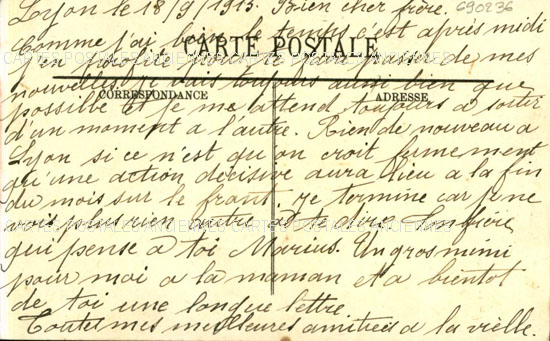 Lyon le 18/9/1915. Bien cher frère. 690236
Comme j'ai bien le temps c'est après midi
CARTE POSTALE
j'en profite pour te faire passer de mes
nouvelles je vais toujours aussi bien que
CORRESPONDANCE ADRESSE
possible et je me attend toujours a sortir
d'un moment a l'autre. Rien de nouveau a
Lyon si ce n'est qu on croit furmement
qu'une action décisive aura lieu a la fin
du mois sur le front je termine car je ne
vois plus rien autre a te dire. Ton frère
CARTES POSTALES ANCIENNES
qui pense a toi Marius. Un gros mimi
pour moi a la maman et a bientot
de toi une longue lettre.
Toutes mes meilleures amitiées a la vieille.